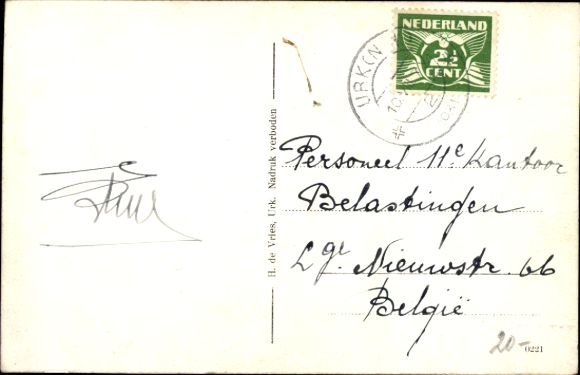 NEDERLAND
2½
CENT
URK (N
H. de Vries, Urk. Nadruk verboden
Personeel 11e Kantoor
Belastingen
Lge. Nieuwstr. 66
België
20-
0221